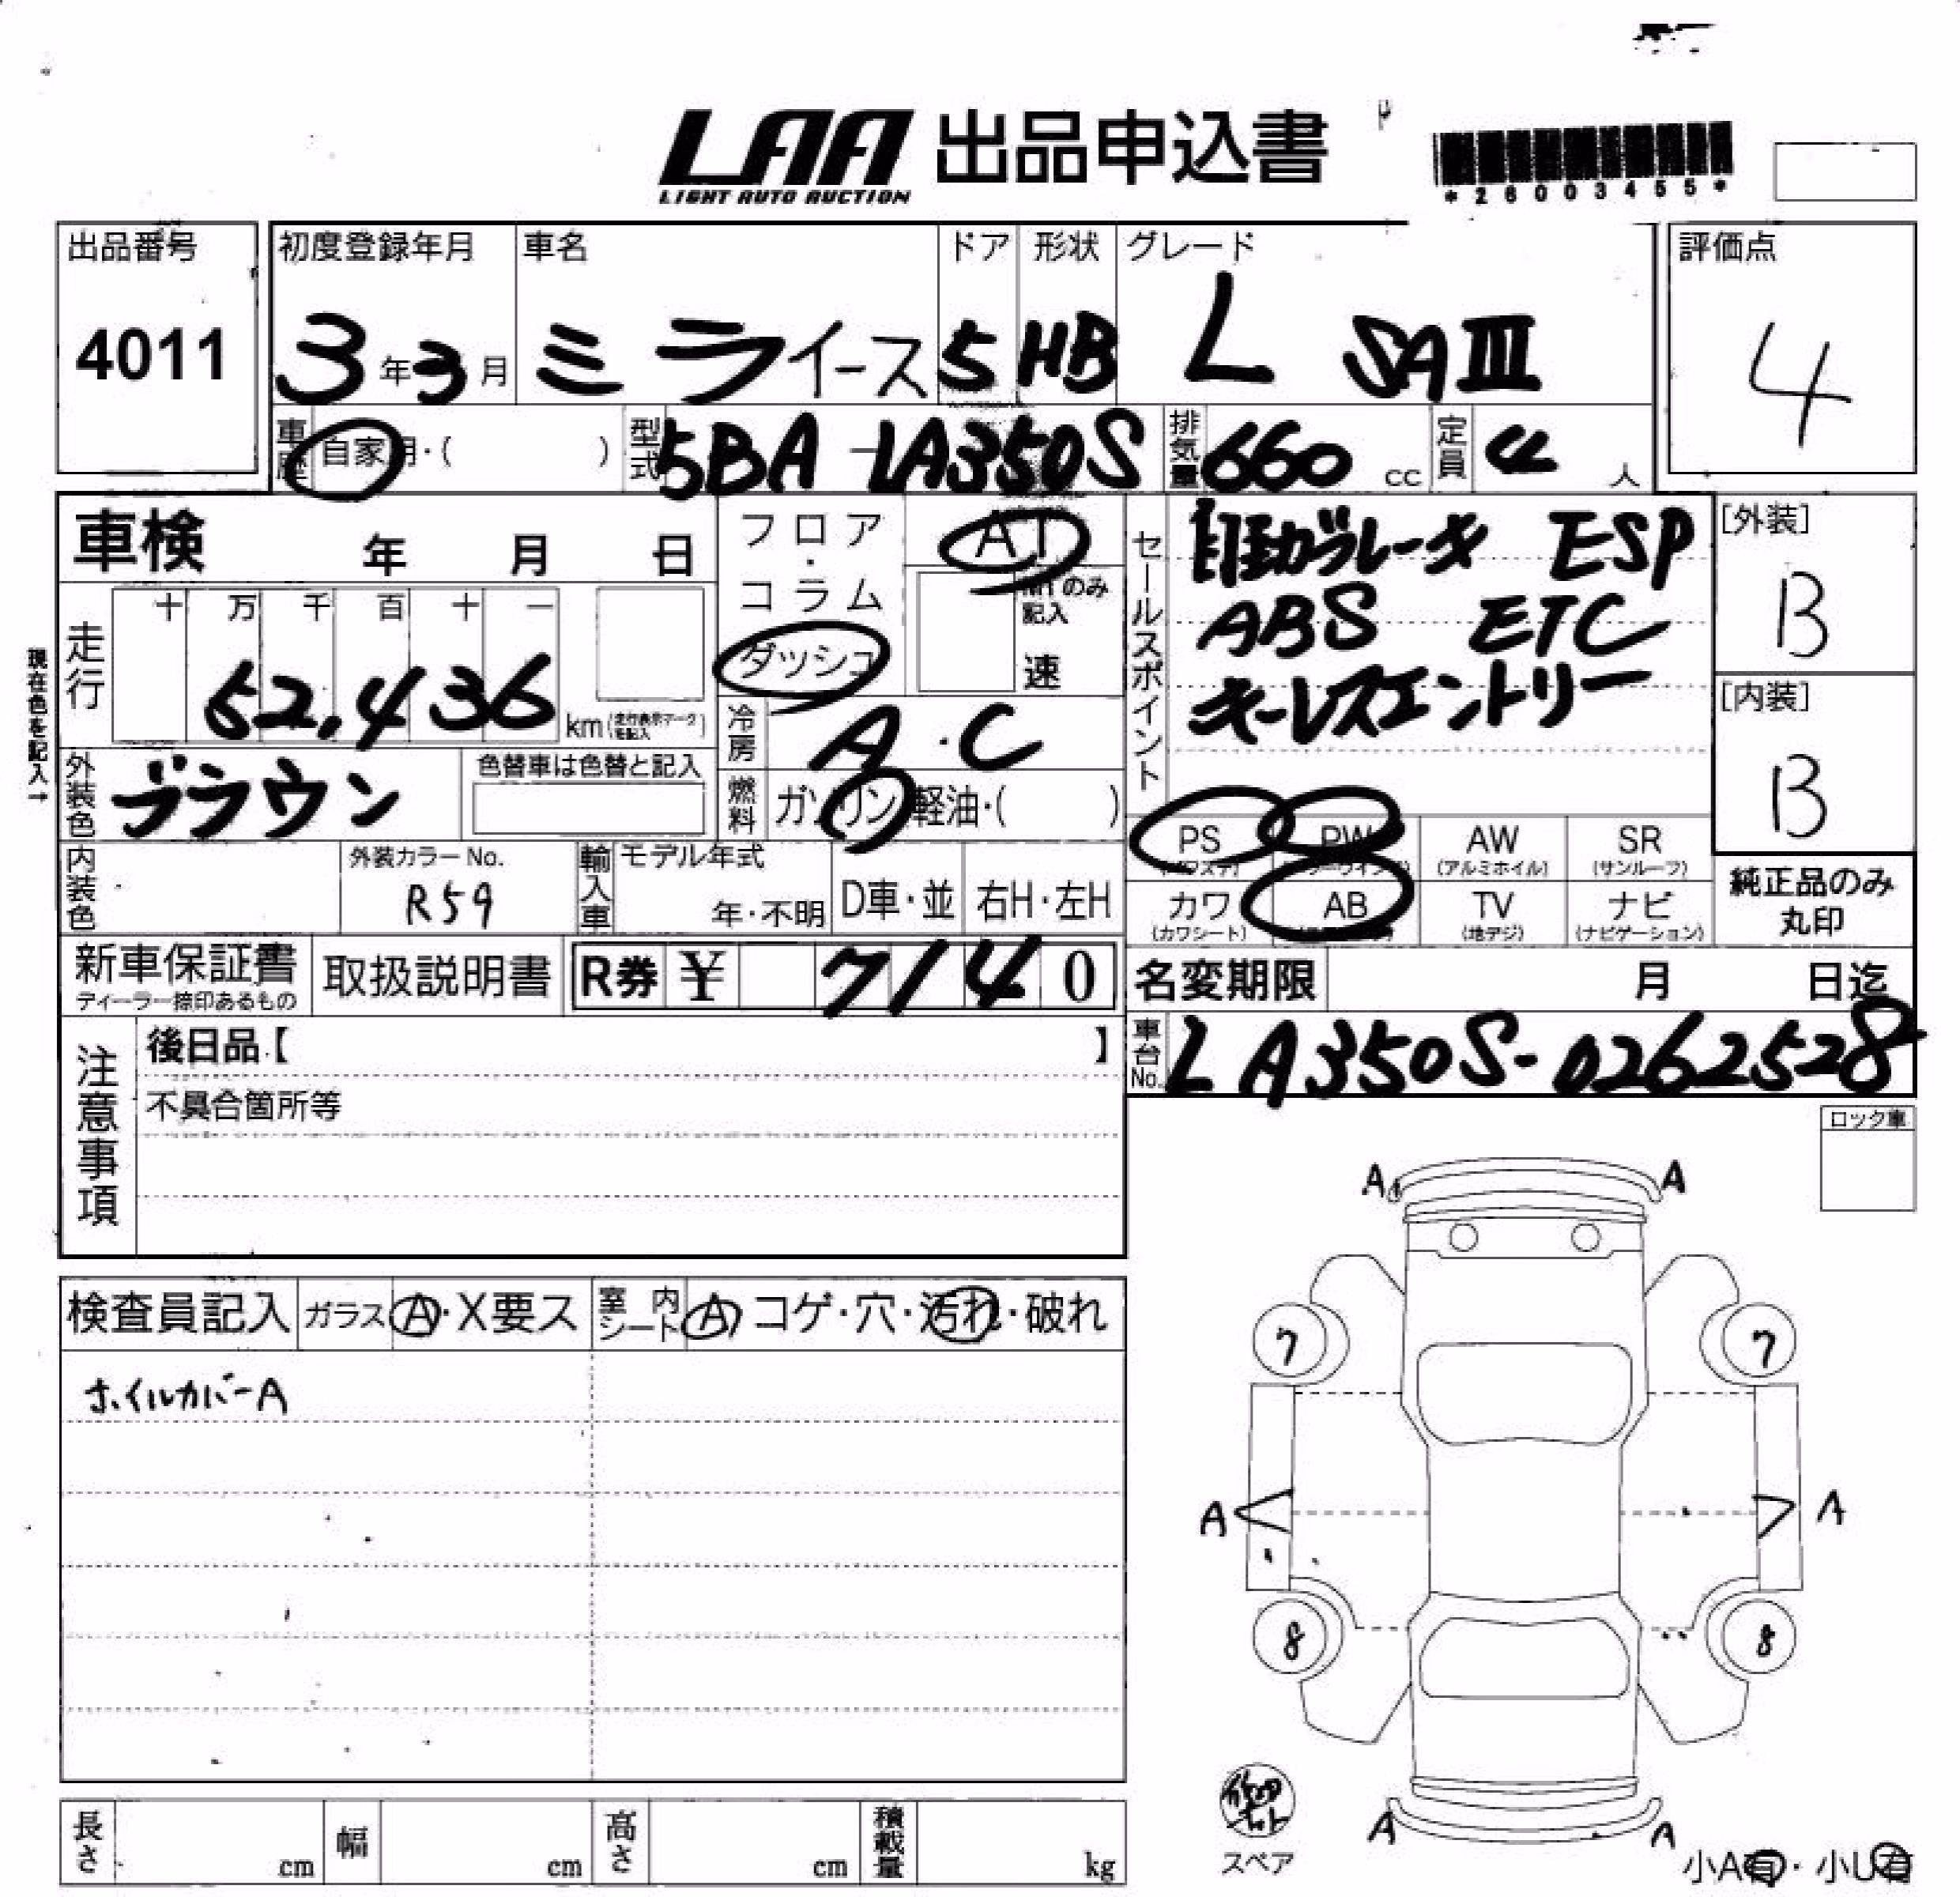 LAA 出品申込書
LIGHT AUTO AUCTION
*26003455*
出品番号
4011
初度登録年月
3年3月
車名
ミライース
ドア
5
形状
HB
グレード
L SAⅢ
評価点
4
車歴 自家用・( )
型式 5BA-LA350S
排気量 660 cc
定員 4 人
車検 年 月 日
フロア・コラム
ダッシュ
AT
MTのみ記入
速
現在色を記入→
走行 十 万 千 百 十 一
52,436 km (走行表示マークを記入)
冷房 A・C
燃料 ガソリン 軽油・( )
外装色 ブラウン
色替車は色替と記入
内装色
外装カラーNo.
R59
輸入車 モデル年式
年・不明
D車・並
右H・左H
セールスポイント
自動ブレーキ ESP
ABS ETC
キーレスエントリー
[外装]
B
[内装]
B
PS PW AW SR
(アルミホイル) (サンルーフ)
カワ AB TV ナビ
(カワシート) (地デジ) (ナビゲーション)
純正品のみ
丸印
新車保証書
ディーラー捺印あるもの
取扱説明書
R券 ¥ 7140
名変期限 月 日迄
車台No. LA350S-0262528
注意事項
後日品【 】
不具合箇所等
ロック車
検査員記入 ガラス A・X要ス
室内シート A コゲ・穴・汚れ・破れ
ホイルカバーA
A A
7 7
A A
8 8
A A
スペア
小A有・小U有
長さ cm
幅 cm
高さ cm
積載量 kg